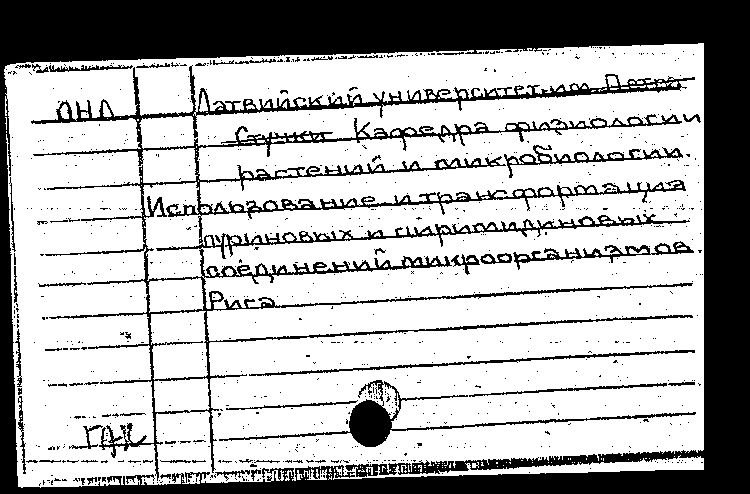 ОНЛ Латвийский университет им. Петра
Стучки Кафедра физиологии
растений и микробиологии.
Использование и трансформация
пуриновых и пиримидиновых
соединений микроорганизмов.
Рига
ГАК